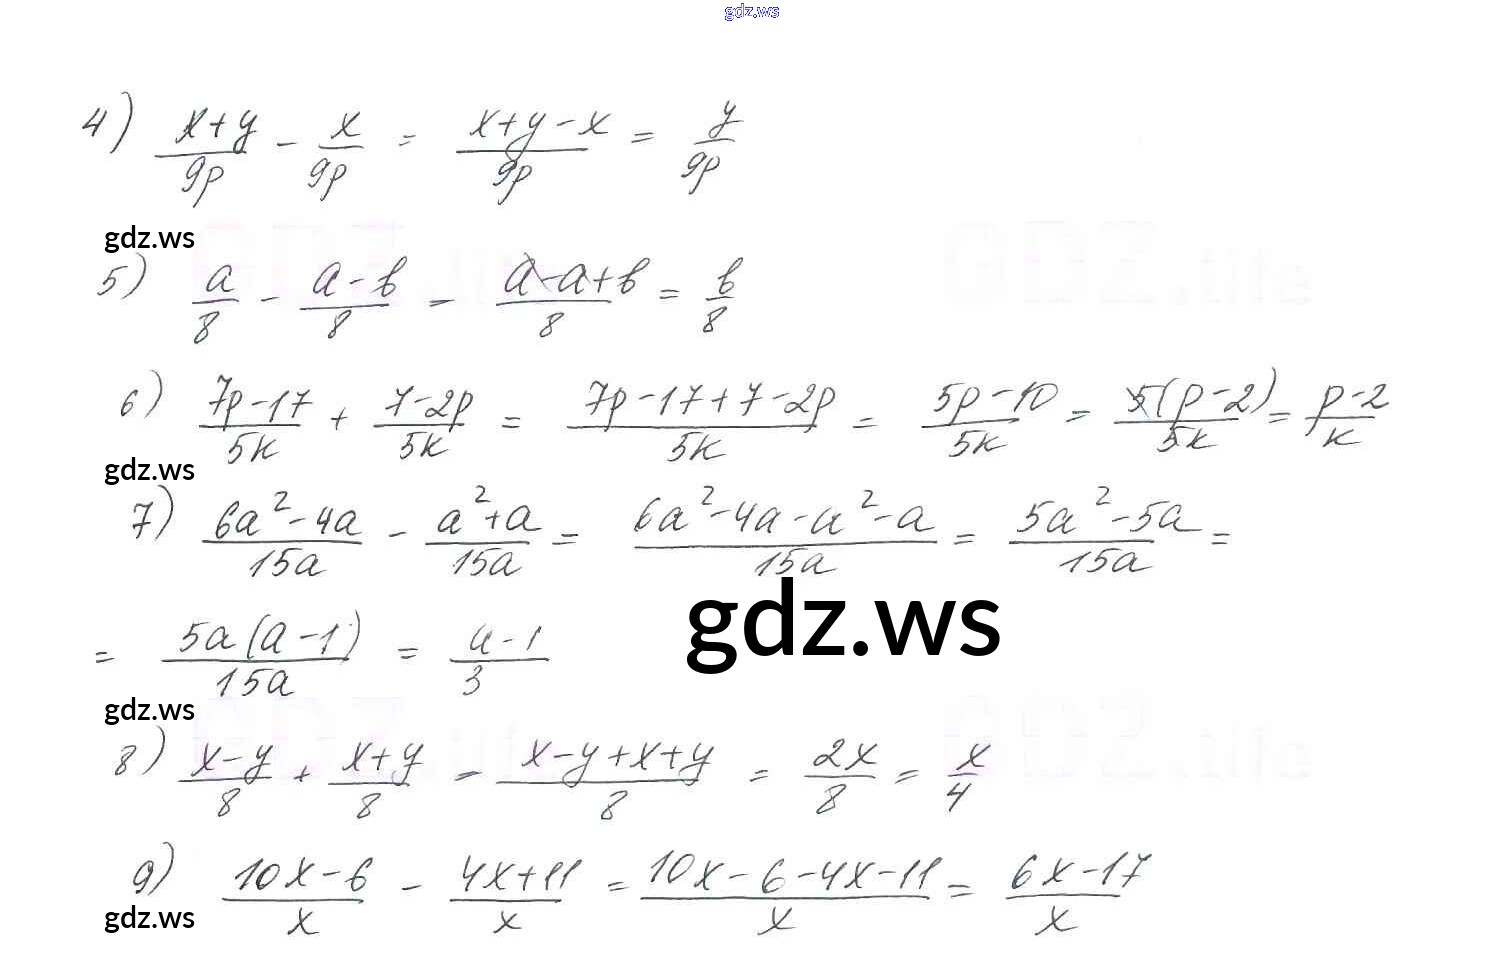 gdz.ws
4) (x+y)/9p - x/9p = (x+y-x)/9p = y/9p
gdz.ws
5) a/8 - (a-b)/8 = (a-a+b)/8 = b/8
6) (7p-17)/5k + (7-2p)/5k = (7p-17+7-2p)/5k = (5p-10)/5k = 5(p-2)/5k = (p-2)/k
gdz.ws
7) (6a²-4a)/15a - (a²+a)/15a = (6a²-4a-a²-a)/15a = (5a²-5a)/15a =
gdz.ws
= 5a(a-1)/15a = (a-1)/3
gdz.ws
8) (x-y)/8 + (x+y)/8 = (x-y+x+y)/8 = 2x/8 = x/4
9) (10x-6)/x - (4x+11)/x = (10x-6-4x-11)/x = (6x-17)/x
gdz.ws